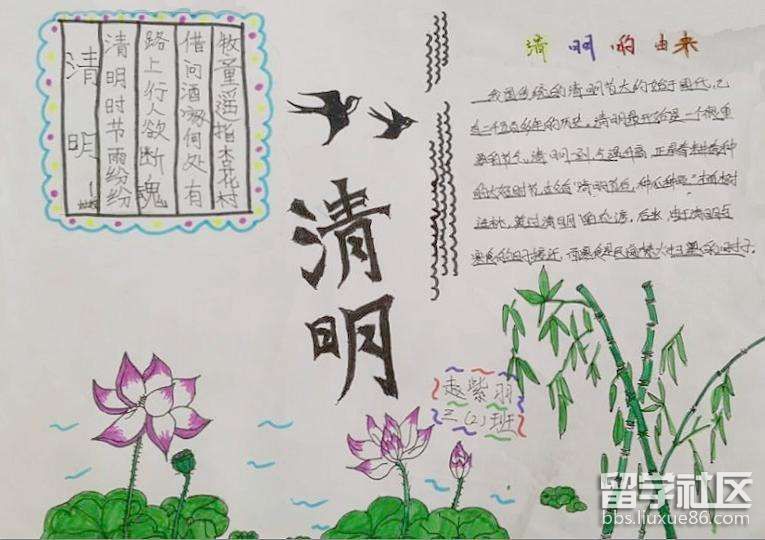 清明
清明时节雨纷纷
路上行人欲断魂
借问酒家何处有
牧童遥指杏花村
清明
清明的由来
我国传统的清明节大约始于周代,已
有二千五百多年的历史。清明最开始是一个很重
要的节气,清明一到,气温升高,正是春耕春种
的大好时节,故有“清明前后,种瓜种豆”“植树
造林,莫过清明”的农谚。后来,由于清明与
寒食的日子接近,而寒食是民间禁火扫墓的日子。
赵紫羽
三(2)班
留学社区
bbs.liuxue86.com